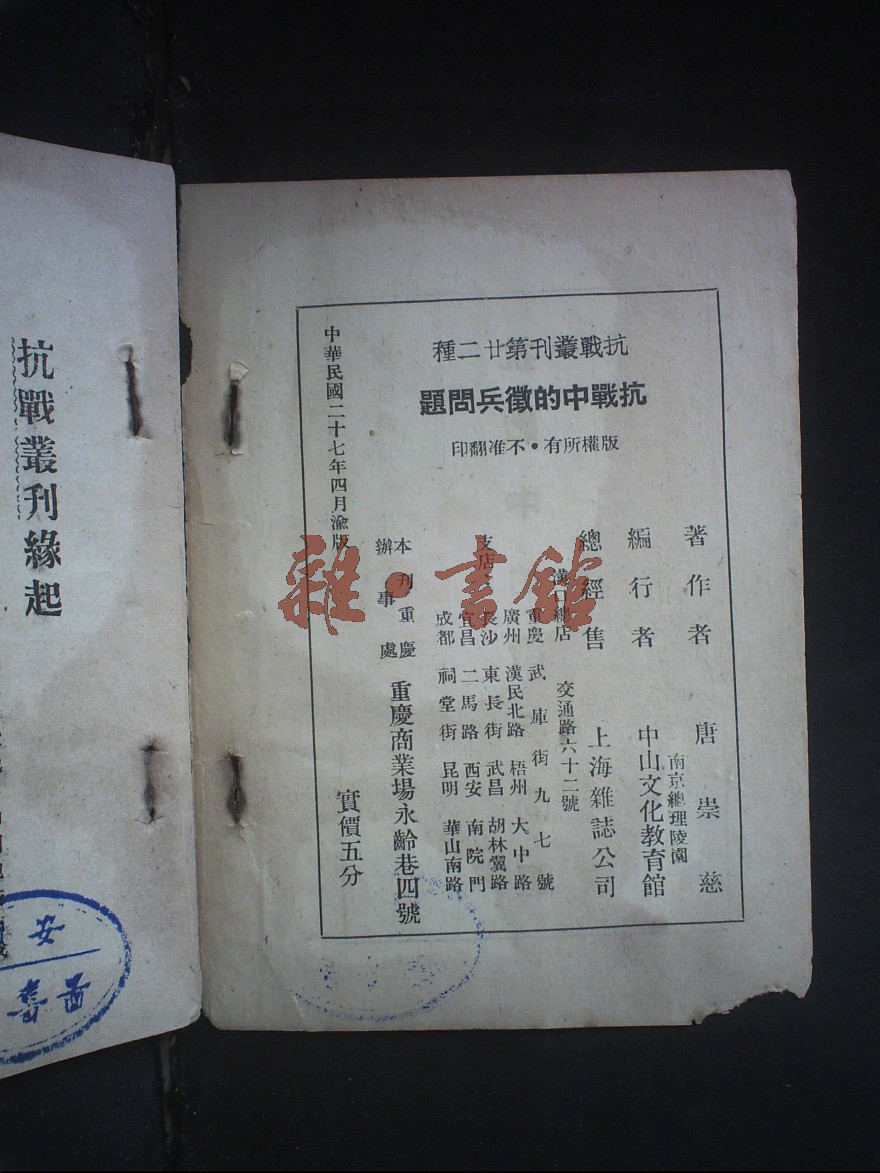 抗戰叢刊第廿二種
抗戰中的徵兵問題
版權所有•不准翻印
著作者 唐崇慈
編行者 南京總理陵園
中山文化教育館
總經售 上海雜誌公司
漢口總店 交通路六十二號
支店
重慶 武庫街九七號
廣州 漢民北路 梧州 大中路
長沙 東長街 武昌 胡林翼路
宜昌 二馬路 西安 南院門
成都 祠堂街 昆明 華山南路
本刊重慶
辦事處
重慶商業場永齡巷四號
中華民國二十七年四月渝版
實價五分
抗戰叢刊緣起
雜·書館
安
書